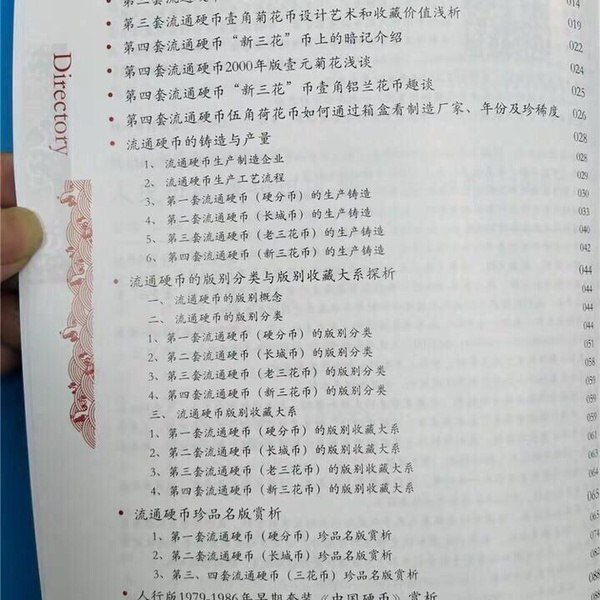 Directory
014
第三套流通硬币壹角菊花币设计艺术和收藏价值浅析 019
第四套流通硬币“新三花”币上的暗记介绍 022
第四套流通硬币2000年版壹元菊花浅谈 024
第四套流通硬币“新三花”币壹角铝兰花币趣谈 025
第四套流通硬币伍角荷花币如何通过箱盒看制造厂家、年份及珍稀度 026
流通硬币的铸造与产量 028
1、流通硬币生产制造企业 028
2、流通硬币生产工艺流程 029
3、第一套流通硬币（硬分币）的生产铸造 030
4、第二套流通硬币（长城币）的生产铸造 033
5、第三套流通硬币（老三花币）的生产铸造 040
6、第四套流通硬币（新三花币）的生产铸造 042
流通硬币的版别分类与版别收藏大系探析 044
一、流通硬币的版别概念 044
二、流通硬币的版别分类 044
1、第一套流通硬币（硬分币）的版别分类 051
2、第二套流通硬币（长城币）的版别分类 058
3、第三套流通硬币（老三花币）的版别分类 059
4、第四套流通硬币（新三花币）的版别分类 059
三、流通硬币版别收藏大系 059
1、第一套流通硬币（硬分币）的版别收藏大系 061
2、第二套流通硬币（长城币）的版别收藏大系 063
3、第三套流通硬币（老三花币）的版别收藏大系
4、第四套流通硬币（新三花币）的版别收藏大系 065
流通硬币珍品名版赏析 065
1、第一套流通硬币（硬分币）珍品名版赏析 074
2、第二套流通硬币（长城币）珍品名版赏析 082
3、第三、四套流通硬币（三花币）珍品名版赏析 088
人行版1979-1986年早期套装《中国硬币》赏析